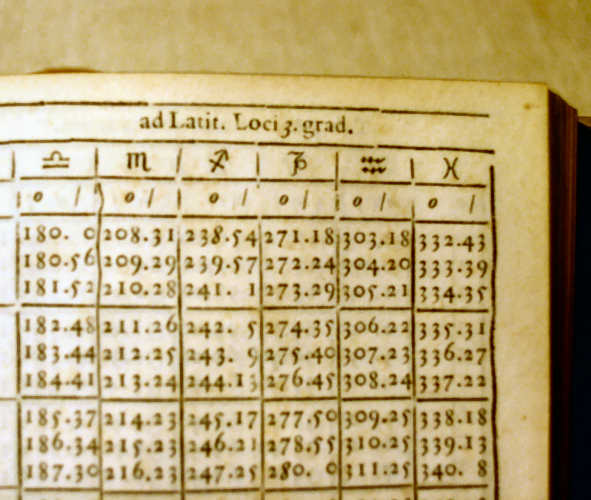 ad Latit. Loci 3. grad.
♎ ♏ ♐ ♑ ♒ ♓
o / o / o / o / o / o /
180. 0 208.31 238.54 271.18 303.18 332.43
180.56 209.29 239.57 272.24 304.20 333.39
181.52 210.28 241. 1 273.29 305.21 334.35
182.48 211.26 242. 5 274.35 306.22 335.31
183.44 212.25 243. 9 275.40 307.23 336.27
184.41 213.24 244.13 276.45 308.24 337.22
185.37 214.23 245.17 277.50 309.25 338.18
186.34 215.23 246.21 278.55 310.25 339.13
187.30 216.23 247.25 280. 0 311.25 340. 8